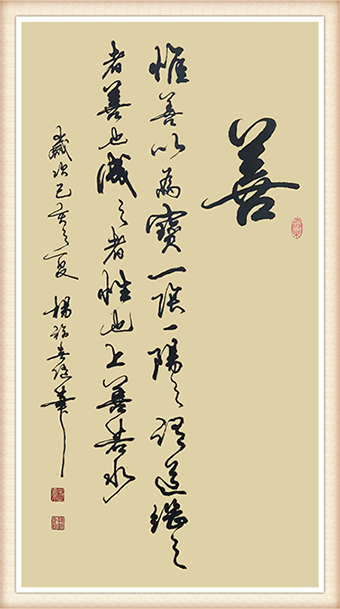 善
惟善以為寶一陰一陽之謂道繼之
者善也成之者性也上善若水
歲次己亥之夏 楊福